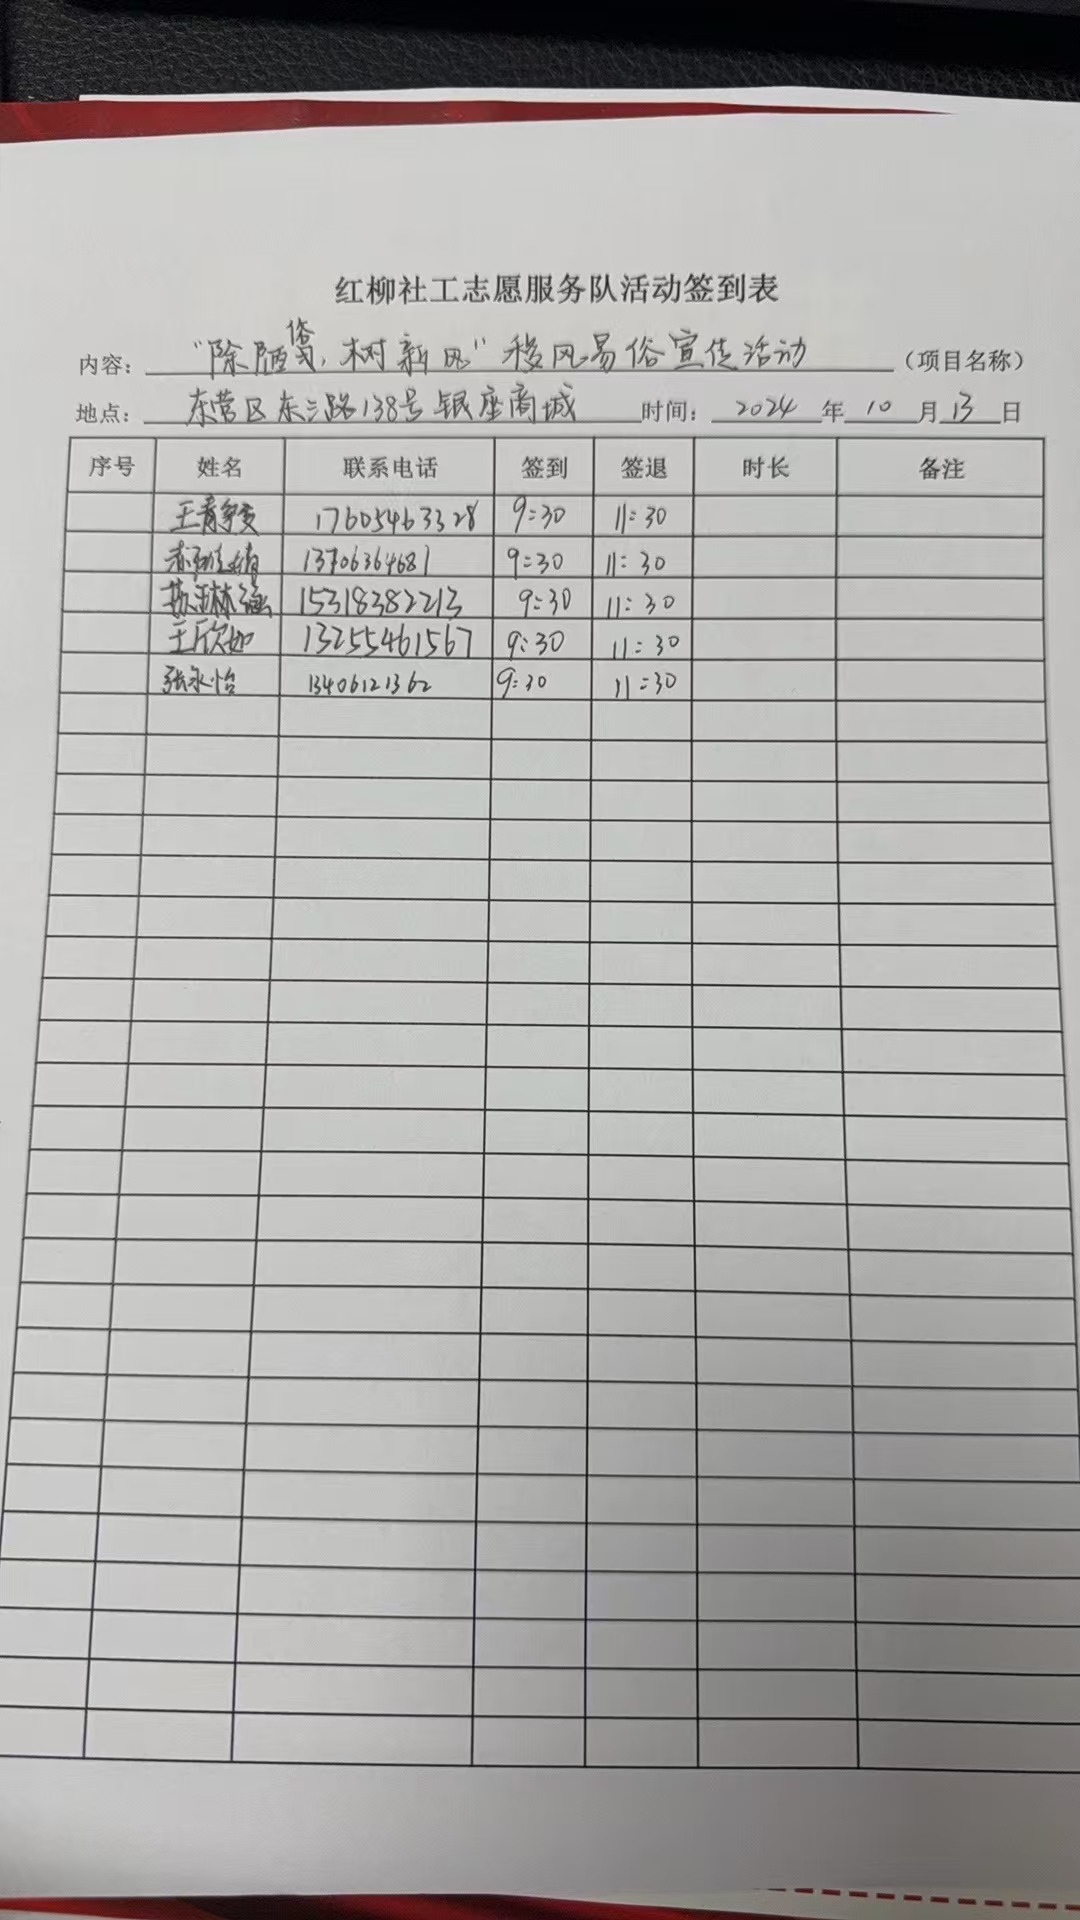 红柳社工志愿服务队活动签到表
内容： "除陋俗，树新风"移风易俗宣传活动 （项目名称）
地点： 东营区东三路138号银座商城 时间： 2024 年 10 月 13 日
序号 姓名 联系电话 签到 签退 时长 备注
17605463328 9:30 11:30
13706364681 9:30 11:30
15318382213 9:30 11:30
王欣如 13255461567 9:30 11:30
张永怡 13406121362 9:30 11:30